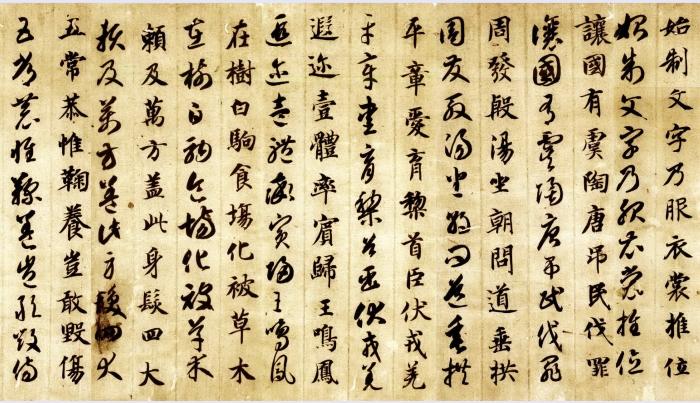 始制文字乃服衣裳推位
始制文字乃服衣裳推位
讓國有虞陶唐弔民伐罪
讓國有虞陶唐弔民伐罪
周發殷湯坐朝問道垂拱
周發殷湯坐朝問道垂拱
平章愛育黎首臣伏戎羌
平章愛育黎首臣伏戎羌
遐迩壹體率賓歸王鳴鳳
遐迩壹體率賓歸王鳴鳳
在樹白駒食塲化被草木
在樹白駒食場化被草木
賴及萬方盖此身髮四大
賴及萬方盖此身髮四大
五常恭惟鞠養豈敢毀傷
五常恭惟鞠養豈敢毀傷